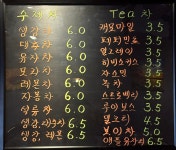 수제차
생강 6.0
대추차 6.0
유자차 6.0
모과차 6.0
레몬차 6.0
자몽차 6.0
생강 대추차 6.5
생강 레몬 6.5
Tea 차
캐모마일 3.5
페퍼민트 3.5
얼그레이 3.5
히비스커스 3.5
자스민 3.5
녹차 3.5
3.5
루이보스 3.5
3.5
보이차 5.0
6.5